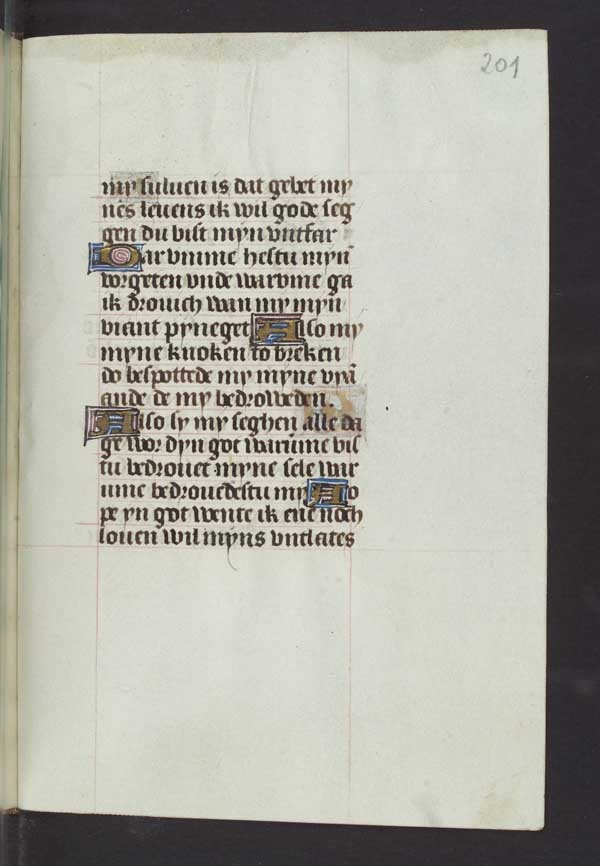 201
my suluen is dat gebet my
nēs leuens ik wil gode seg
gen du bist myn vntfar
Warumme hestu myn
vorgeten vnde warvme ga
ik drouich wan my myn
viant pyneget Also my
myne knoken to breken
do bespottede my myne vyā
ande de my bedroweden.
Also sy my seghen alle da
ge wor dyn got warūme bis
tu bedrouet myne sele war
umme bedrouedestu my Ho
pe yn got wente ik eme noch
louen wil myns vntlates